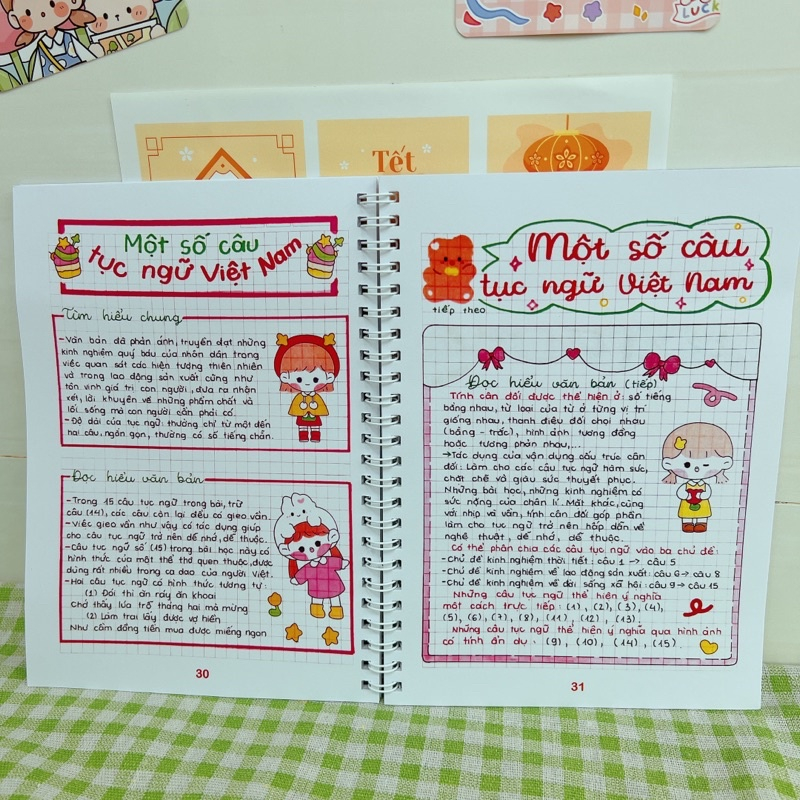 LUCK
Tết
Một số câu
tục ngữ Việt Nam
Tìm hiểu chung
- Văn bản đã phản ánh, truyền đạt những
kinh nghiệm quý báu của nhân dân trong
việc quan sát các hiện tượng thiên nhiên
và trong lao động sản xuất cũng như
tôn vinh giá trị con người, đưa ra nhận
xét, lời khuyên về những phẩm chất và
lối sống mà con người cần phải có.
- Độ dài của tục ngữ thường chỉ từ một đến
hai câu, ngắn gọn, thường có số tiếng chẵn.
Đọc hiểu văn bản
- Trong 15 câu tục ngữ trong bài, trừ
câu (14), các câu còn lại đều có gieo vần.
- Việc gieo vần như vậy có tác dụng giúp
cho câu tục ngữ trở nên dễ nhớ, dễ thuộc.
- Câu tục ngữ số (15) trong bài học này có
hình thức của một thể thơ quen thuộc, được
dùng rất nhiều trong ca dao của người Việt.
- Hai câu tục ngữ có hình thức tương tự:
(1) Đói thì ăn ráy ăn khoai
Chớ thấy lúa trỗ tháng hai mà mừng
(2) Làm trai lấy được vợ hiền
Như cầm đồng tiền mua được miếng ngon
30
Một số câu
tục ngữ Việt Nam
tiếp theo
Đọc hiểu văn bản (tiếp).
Tính cân đối được thể hiện ở: số tiếng
bằng nhau, từ loại của từ ở từng vị trí
giống nhau, thanh điệu đối chọi nhau
(bằng - trắc), hình ảnh tương đồng
hoặc tương phản nhau,...
→ Tác dụng của vận dụng cấu trúc cân
đối: Làm cho các câu tục ngữ hàm súc,
chặt chẽ và giàu sức thuyết phục.
Những bài học, những kinh nghiệm có
sức nặng của chân lí. Mặt khác, cùng
với nhịp và vần, tính cân đối góp phần
làm cho tục ngữ trở nên hấp dẫn về
nghệ thuật, dễ nhớ, dễ thuộc.
Có thể phân chia các câu tục ngữ vào ba chủ đề:
- Chủ đề kinh nghiệm thời tiết: câu 1 → câu 5
- Chủ đề kinh nghiệm về lao động sản xuất: câu 6 → câu 8
- Chủ đề kinh nghiệm về đời sống xã hội: câu 9 → câu 15
Những câu tục ngữ thể hiện ý nghĩa
một cách trực tiếp: (1), (2), (3), (4),
(5), (6), (7), (8), (11), (12), (13).
Những câu tục ngữ thể hiện ý nghĩa qua hình ảnh
có tính ẩn dụ: (9), (10), (14), (15).
31